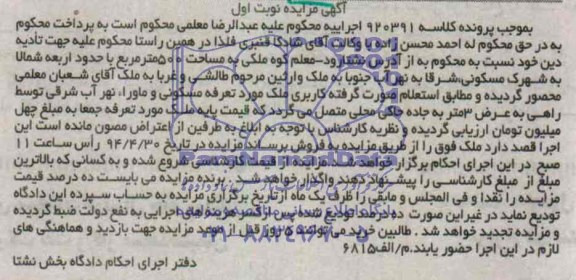 آگهی مزایده نوبت اول
بموجب پرونده کلاسه ۹۲۰۳۹۱ اجراییه محکوم علیه عبدالرضا معلمی محکوم است به پرداخت محکوم
به در حق محکوم له احمد محسن زاده با وکالت آقای شادکا قنبری فلذا در همین راستا محکوم علیه جهت تادیه
دین خود نسبت به محکوم به از آدرس نشتارود-معلم کوه ملکی به مساحت ۵۰۰مترمربع با حدود اربعه شمالا
به شهرک مسکونی،شرقا به نهر آب جنوبا به ملک وارثین مرحوم طالشی و غربا به ملک آقای شعبان معلمی
محصور گردیده و مطابق استعلام صورت گرفته کاربری ملک مورد تعرفه مسکونی و ماوراء نهر آب شرقی توسط
راهی به عرض ۳متر به جاده خاکی محلی متصل می گردد که قیمت پایه ملک مورد تعرفه جمعا به مبلغ چهل
میلیون تومان ارزیابی گردیده و نظریه کارشناس با توجه به ابلاغ به طرفین از اعتراض مصون مانده است این
اجرا قصد دارد ملک فوق را از طریق مزایده به فروش برساند مزایده در تاریخ ۹۴/۴/۳۰ رأس ساعت ۱۱
صبح در این اجرای احکام برگزار خواهد شد مزایده از قیمت کارشناسی شروع شده و به کسانی که بالاترین
مبلغ از مبلغ کارشناسی را پیشنهاد دهند واگذار خواهد شد . برنده مزایده می بایست ده درصد قیمت
مزایده را نقدا و فی المجلس و مابقی را ظرف یک ماه ازتاریخ برگزاری مزایده به حساب سپرده این دادگاه
تودیع نماید در غیراین صورت ده درصد تودیع شده پس از کسر هزینه های اجرایی به نفع دولت ضبط گردیده
و مزایده تجدید خواهد شد . طالبین خرید می توانند ۵ روز قبل از موعد مزایده جهت بازدید و هماهنگی های
لازم در این اجرا حضور یابند.م/الف۶۸۱۵
دفتر اجرای احکام دادگاه بخش نشتا
۰۲۱-۸۸۳۴۹۶۷۰-۵